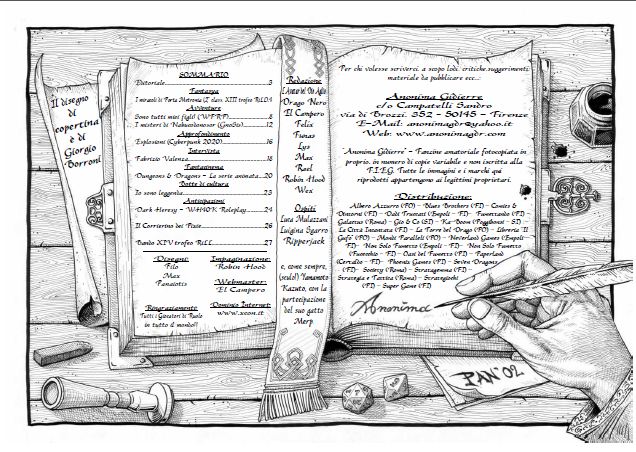 Il disegno
di
copertina
è di
Giorgio
Borroni
SOMMARIO
Editoriale.....3
Fantasya
I miracoli di Porta Metronia (2° class. XIII trofeo RiLL).4
Avventure
Sono tutti miei figli! (WFRP).....8
I misteri di Nakwadonosor (GnoSis).....12
Approfondimento
Esplosioni (Cyberpunk 2020).....16
Intervista
Fabrizio Valenza.....18
Fantacinema
Dungeons & Dragons – La serie animata...20
Botte di cultura
Io sono leggenda.....23
Anticipazioni
Dark Heresy – WH40K Roleplay.....24
Il Corrierino dei Pixie.....26
Bando XIV trofeo RiLL.....27
Disegni:
Filo
Max
Panaiotis
Ringraziamenti:
Tutti i Giocatori di Ruolo
in tutto il mondo!!
Impaginazione:
Robin Hood
Webmaster:
El Campero
Dominio Internet:
www.xcon.it
Redazione
Drago Nero
El Campero
Felix
Fungs
Lys
Max
Rael
Robin Hood
Wex
Ospiti
Luca Mulazzani
Luigina Sgarro
Ripperjack
e, come sempre,
(seulo!) Yamamoto
Kazuto, con la
partecipazione
del suo gatto
Merp
Per chi volesse scriverci, a scopo lodi, critiche, suggerimenti,
materiale da pubblicare ecc..:
Anonima Gidierre
c/o Campatelli Sandro
via di Brozzi, 352 – 50145 – Firenze
E-Mail: anonimagdr@yahoo.it
Web: www.anonimagdr.com
"Anonima Gidierre" – Fanzine amatoriale fotocopiata in
proprio, in numero di copie variabile e non iscritta alla
F.I.E.G. Tutte le immagini e i marchi qui
riprodotti appartengono ai legittimi proprietari.
Distribuzione:
Albero Azzurro (PO) – Blues Brothers (FI) – Comics &
Dintorni (FI) – Dadi Truccati (Empoli – FI) – Fumettando (FI) –
Galaxius (Roma) – Gio & Co (SI) – Ka-Boom (Poggibonsi – SI) –
La Città Incantata (FI) – La Torre del Drago (PO) – Libreria "Il
Gufo" (PO) – Mondi Paralleli (PO) – Neverland Games (Empoli –
FI) – Non Solo Fumetto (Empoli – FI) – Non Solo Fumetto
(Fucecchio – FI) – Oasi del Fumetto (PI) – Paperland
(Certaldo – FI) – Phoenix Games (FI) – Seven Dragons
– (FI) – Society (Roma) – Stratagemma (FI) –
Strategia e Tattica (Roma) – Strategiochi
(FI) – Super Game (FI)
Anonima
PAN'02